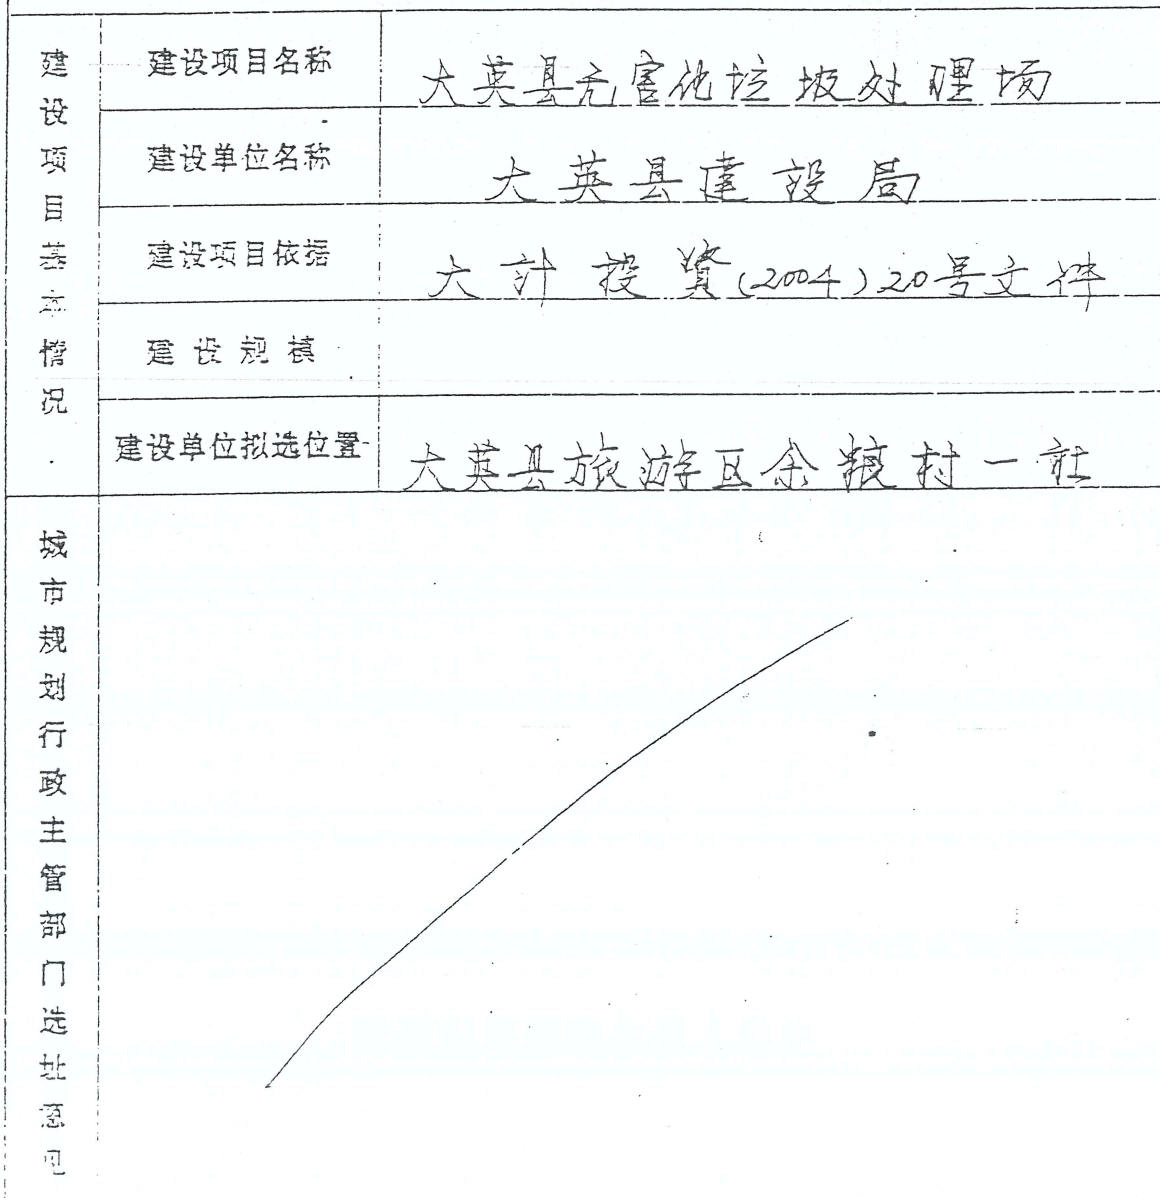 建设项目基本情况
建设项目名称 大英县无害化垃圾处理场
建设单位名称 大英县建设局
建设项目依据 大计投资(2004)20号文件
建设规模
建设单位拟选位置 大英县旅游区余粮村一社
城市规划行政主管部门选址意见